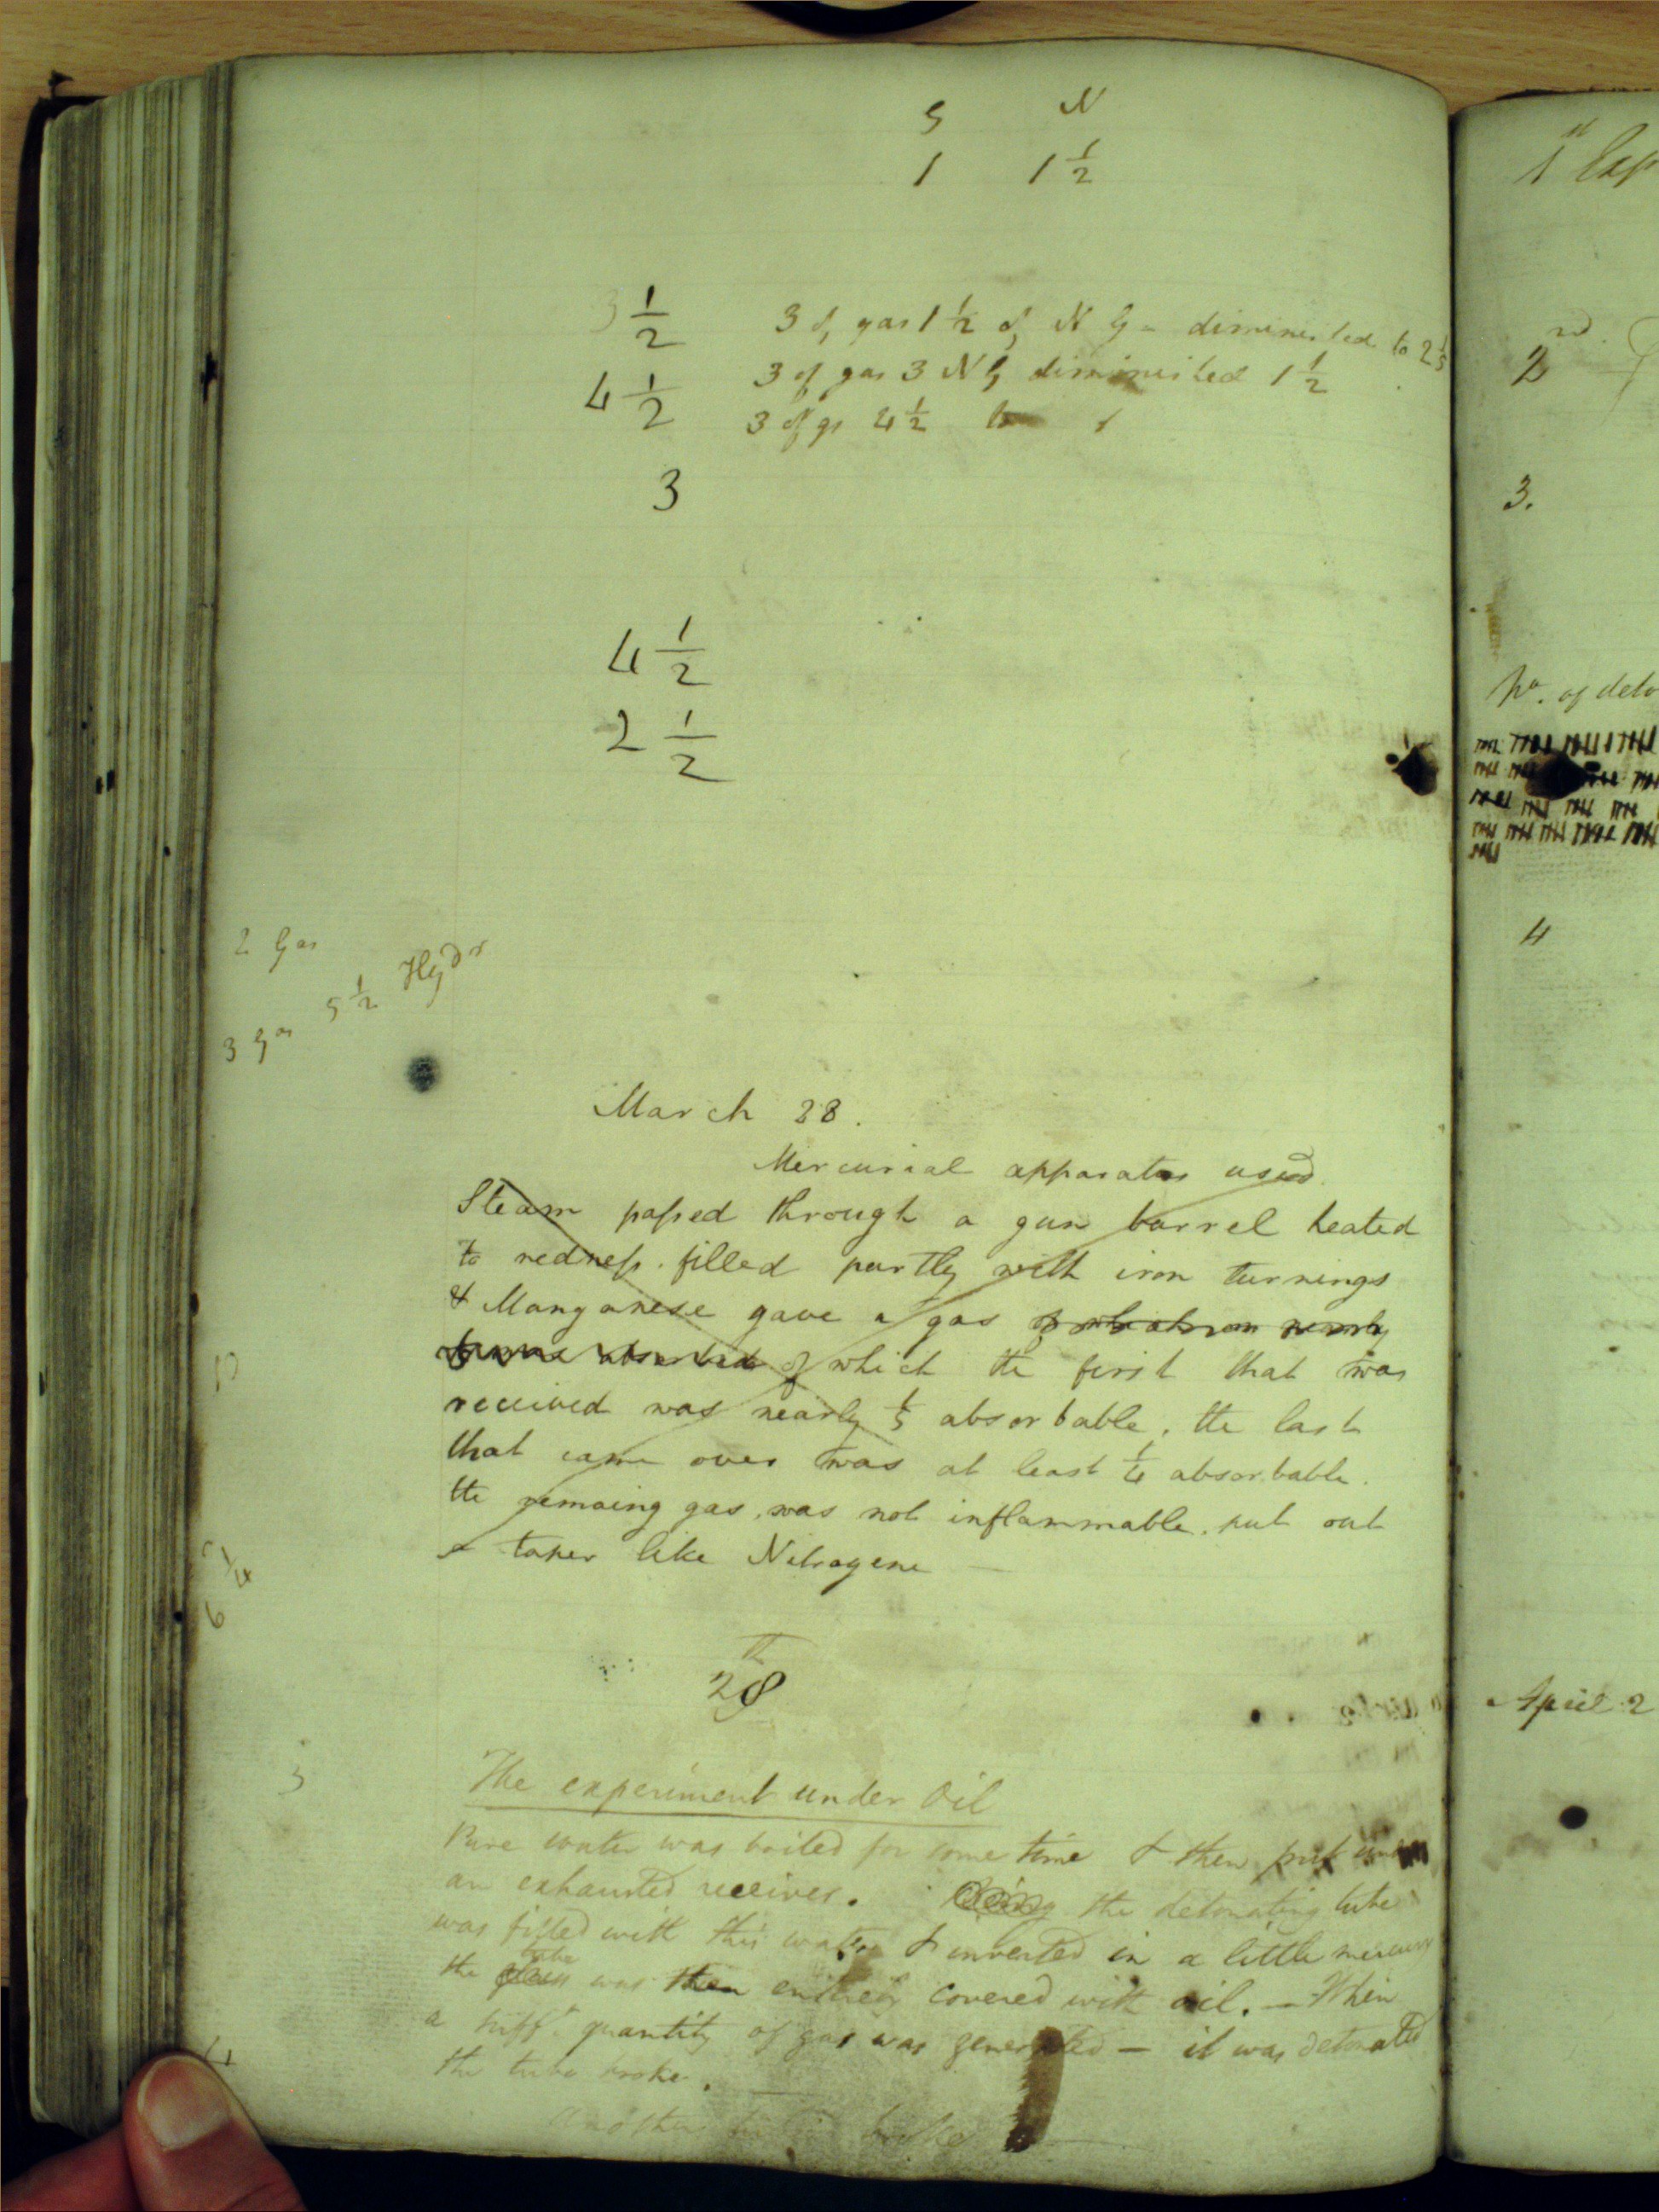 G N
1 1 1/2
3 1/2
3 of gas 1 1/2 of N G - diminished to 2 1/5
4 1/2
3 of gas 3 N G diminished 1 1/2
3 of gs 4 1/2 to 1
3
4 1/2
2 1/2
2 Gas
5 1/2 Hydr
3 Gas
March 28.
Mercurial apparatus used.
Steam passed through a gun barrel heated
to redness. filled partly with iron turnings
& Manganese gave a gas of which nearly
of which the first that was
received was nearly 1/5 absorbable. the last
that came over was at least 1/4 absorbable.
the remaing gas, was not inflammable. put out
a taper like Nitrogene —
28th
3
The experiment under Oil
Pure water was boiled for some time & then put under
an exhausted receiver. the detonating tube
was filled with this water & inverted in a little mercury
the glass tube was then entirely covered with oil. — When
a suff.t quantity of gas was generated — it was detonated
the tube broke. —
Another broke
1st Exp
2nd.
3.
No. of deto
4
April 2